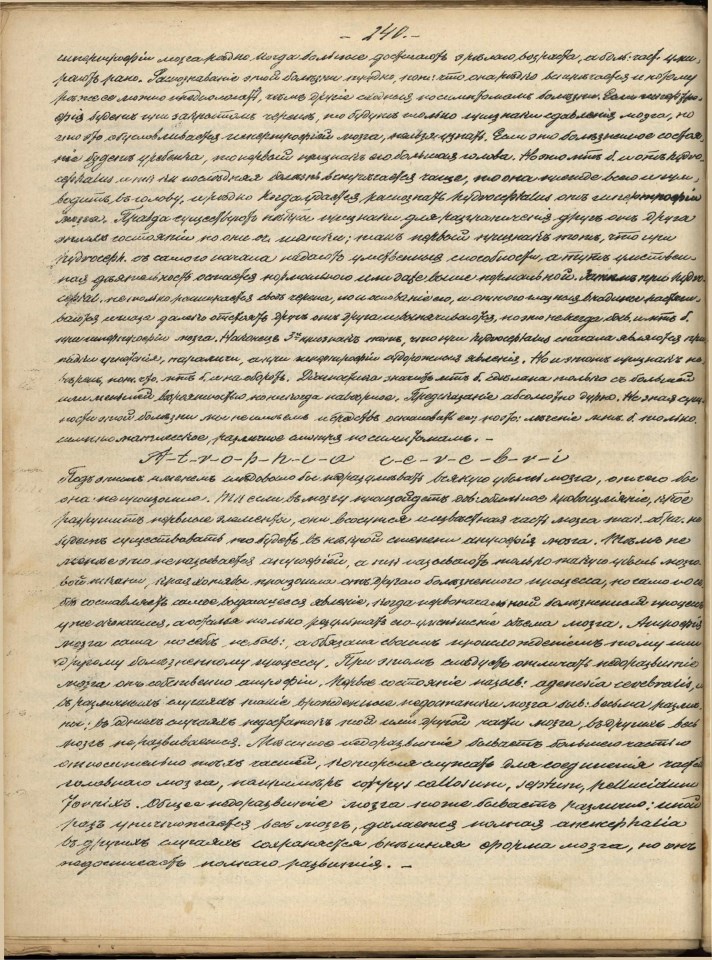 - 240. -
гипертрофіи мозга рѣдко, когда больные достигаютъ зрѣлаго возраста, а больш. част. уми-
раютъ рано. Распознаваніе этой болѣзни трудно, пот: что она рѣдко встрѣчается и потому
можно предполагать, чѣмъ другіе сходныя по симптомамъ болѣзни. Если гипертро-
фія будетъ при закрытомъ черепѣ, то будутъ только признаки сдавленія мозга, но
что это обусловливается гипертрофіей мозга, нельзя узнать. Если это болѣзненное состоя-
ніе будетъ у ребенка, то первый признакъ его большая голова. Но это мтъ б. и отъ hydro-
cephalus и такъ какъ послѣдняя болѣзнь встрѣчается чаще, то она прежде всего и при-
водитъ въ голову, и рѣдко когда удается распознать hydrocephalus отъ гипертрофіи
мозга. Правда существуютъ признаки для различенія другъ отъ друга
этихъ состояній но они оч. шатки; такъ первый признакъ тотъ, что при
hydroceph. съ самаго начала подаютъ умственныя способности, а тутъ умствен-
ная дѣятельность остается нормальной или даже выше нормальной. Затѣмъ при hydro-
cephal. не только расширяется сводъ черепа, но и основаніе его, и отчего глазныя впадины
далеко отстоятъ другъ отъ друга и выпячиваются, но это не всегда быв. и мтъ б.
при гипертрофіи мозга. Наконецъ 3й признакъ тотъ, что при hydrocephalus сначала являются при-
падки угнетенія, параличи, а при гипертрофіи судорожныя явленія. Но и этотъ признакъ не-
вѣренъ, пот. что мтъ б. и наоборотъ. Діагностика значитъ мтъ б. сдѣлана только съ большей
или меньшей вѣроятностью, но никогда навѣрное. Предсказаніе абсолютно дурно. Не зная сущ-
ности этой болѣзни мы не имѣемъ и средствъ остановить ее; потo: лѣченіе мтъ б. только
симптоматическое, различное смотря по симптомамъ. -
A-t-r-o-p-h-i-a c-e-r-e-b-r-i
Подъ этимъ именемъ слѣдовало бы подразумѣвать всякую убыль мозга, отчего бы
она ни произошло. Такъ если въ мозгу произойдетъ обильное кровоизліяніе, кото-
разрушитъ нервные элементы, они всосутся и извѣстная часть мозга так. обр. не
будетъ существовать, то будетъ въ нѣкрой степени атрофія мозга. Тѣмъ не
менѣе это не называется атрофіей, а такъ называютъ только такую убыль мозго-
вой ткани, которая хотя бы произошла отъ другаго болѣзненнаго процесса, но сама по се-
бѣ составляетъ самое выдающееся явленіе, когда первоначальный болѣзненный процессъ
уже окончился, а остался только результатъ его-уменьшеніе объема мозга. Атрофія
мозга сама по себѣ не быв: а обязана своимъ происхожденіемъ тому или
другому болѣзненному процессу. При этомъ слѣдуетъ отличать недоразвитіе
мозга отъ собственно атрофіи. Первое состояніе назыв: agenesia cerebralis, и
въ различныхъ случаяхъ такіе врожденные недостатки мозга быв: весьма различ-
ны: въ однихъ случаяхъ недостаетъ той или другой части мозга, въ другихъ весь
мозгъ не развивается. Мѣстное недоразвитіе бываетъ большею частію
относительно тѣхъ частей, которыя служатъ для соединенія частей
головнаго мозга, напримѣръ corpus callosum, septum, pellucidum
Fornix. Общее недоразвитіе мозга тоже бываетъ различно: иной
разъ уничтожается весь мозгъ, дѣлается полная anencephalia
въ другихъ случаяхъ сохраняется внѣшняя форма мозга, но онъ
недостигаетъ полнаго развитія. -